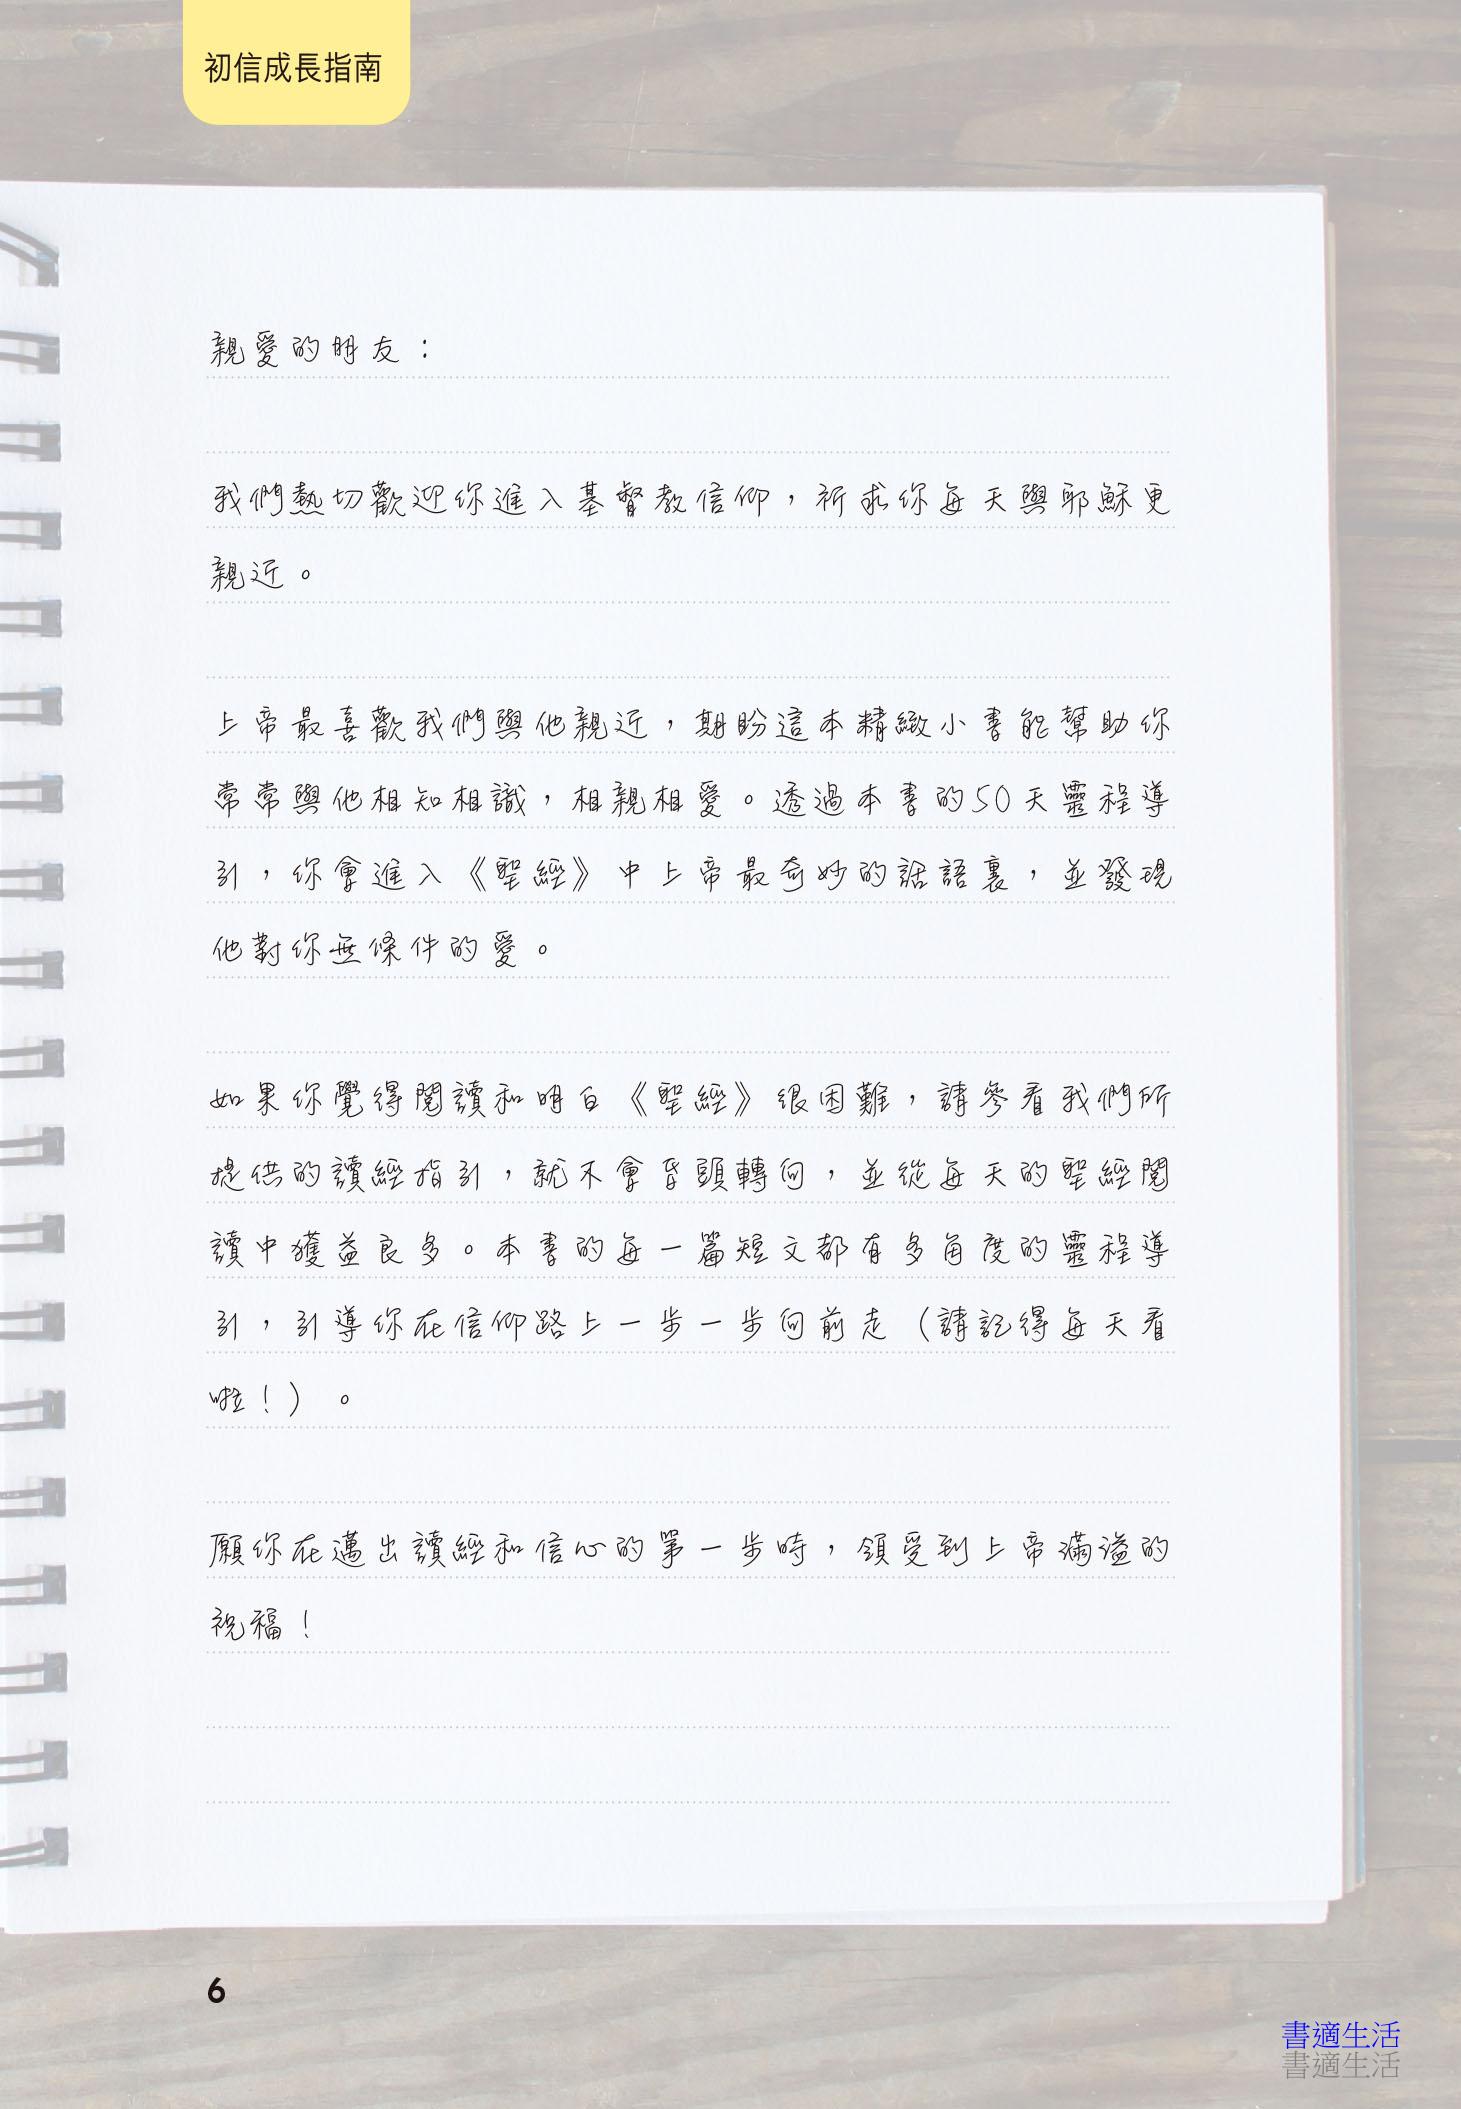 初信成長指南
親愛的朋友：
我們熱切歡迎你進入基督教信仰，祈求你每天與耶穌更
親近。
上帝最喜歡我們與他親近，期盼這本精緻小書能幫助你
常常與他相知相識，相親相愛。透過本書的50天靈程導
引，你會進入《聖經》中上帝最奇妙的話語裏，並發現
他對你無條件的愛。
如果你覺得閱讀和明白《聖經》很困難，請參看我們所
提供的讀經指引，就不會昏頭轉向，並從每天的聖經閱
讀中獲益良多。本書的每一篇短文都有多角度的靈程導
引，引導你在信仰路上一步一步向前走（請記得每天看
啦！）。
願你在邁出讀經和信心的第一步時，領受到上帝滿溢的
祝福！
6
書適生活
書適生活